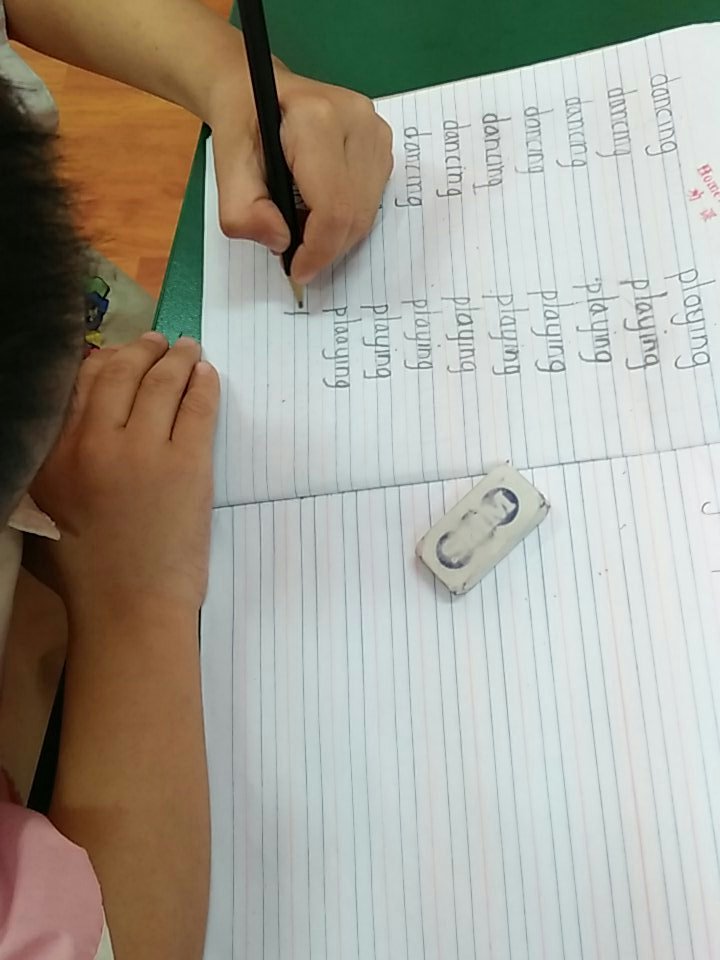 Home
功课
dancing playing
dancing playing
dancing playing
dancing playing
dancing playing
dancing playing
dancing playing
playing
playing